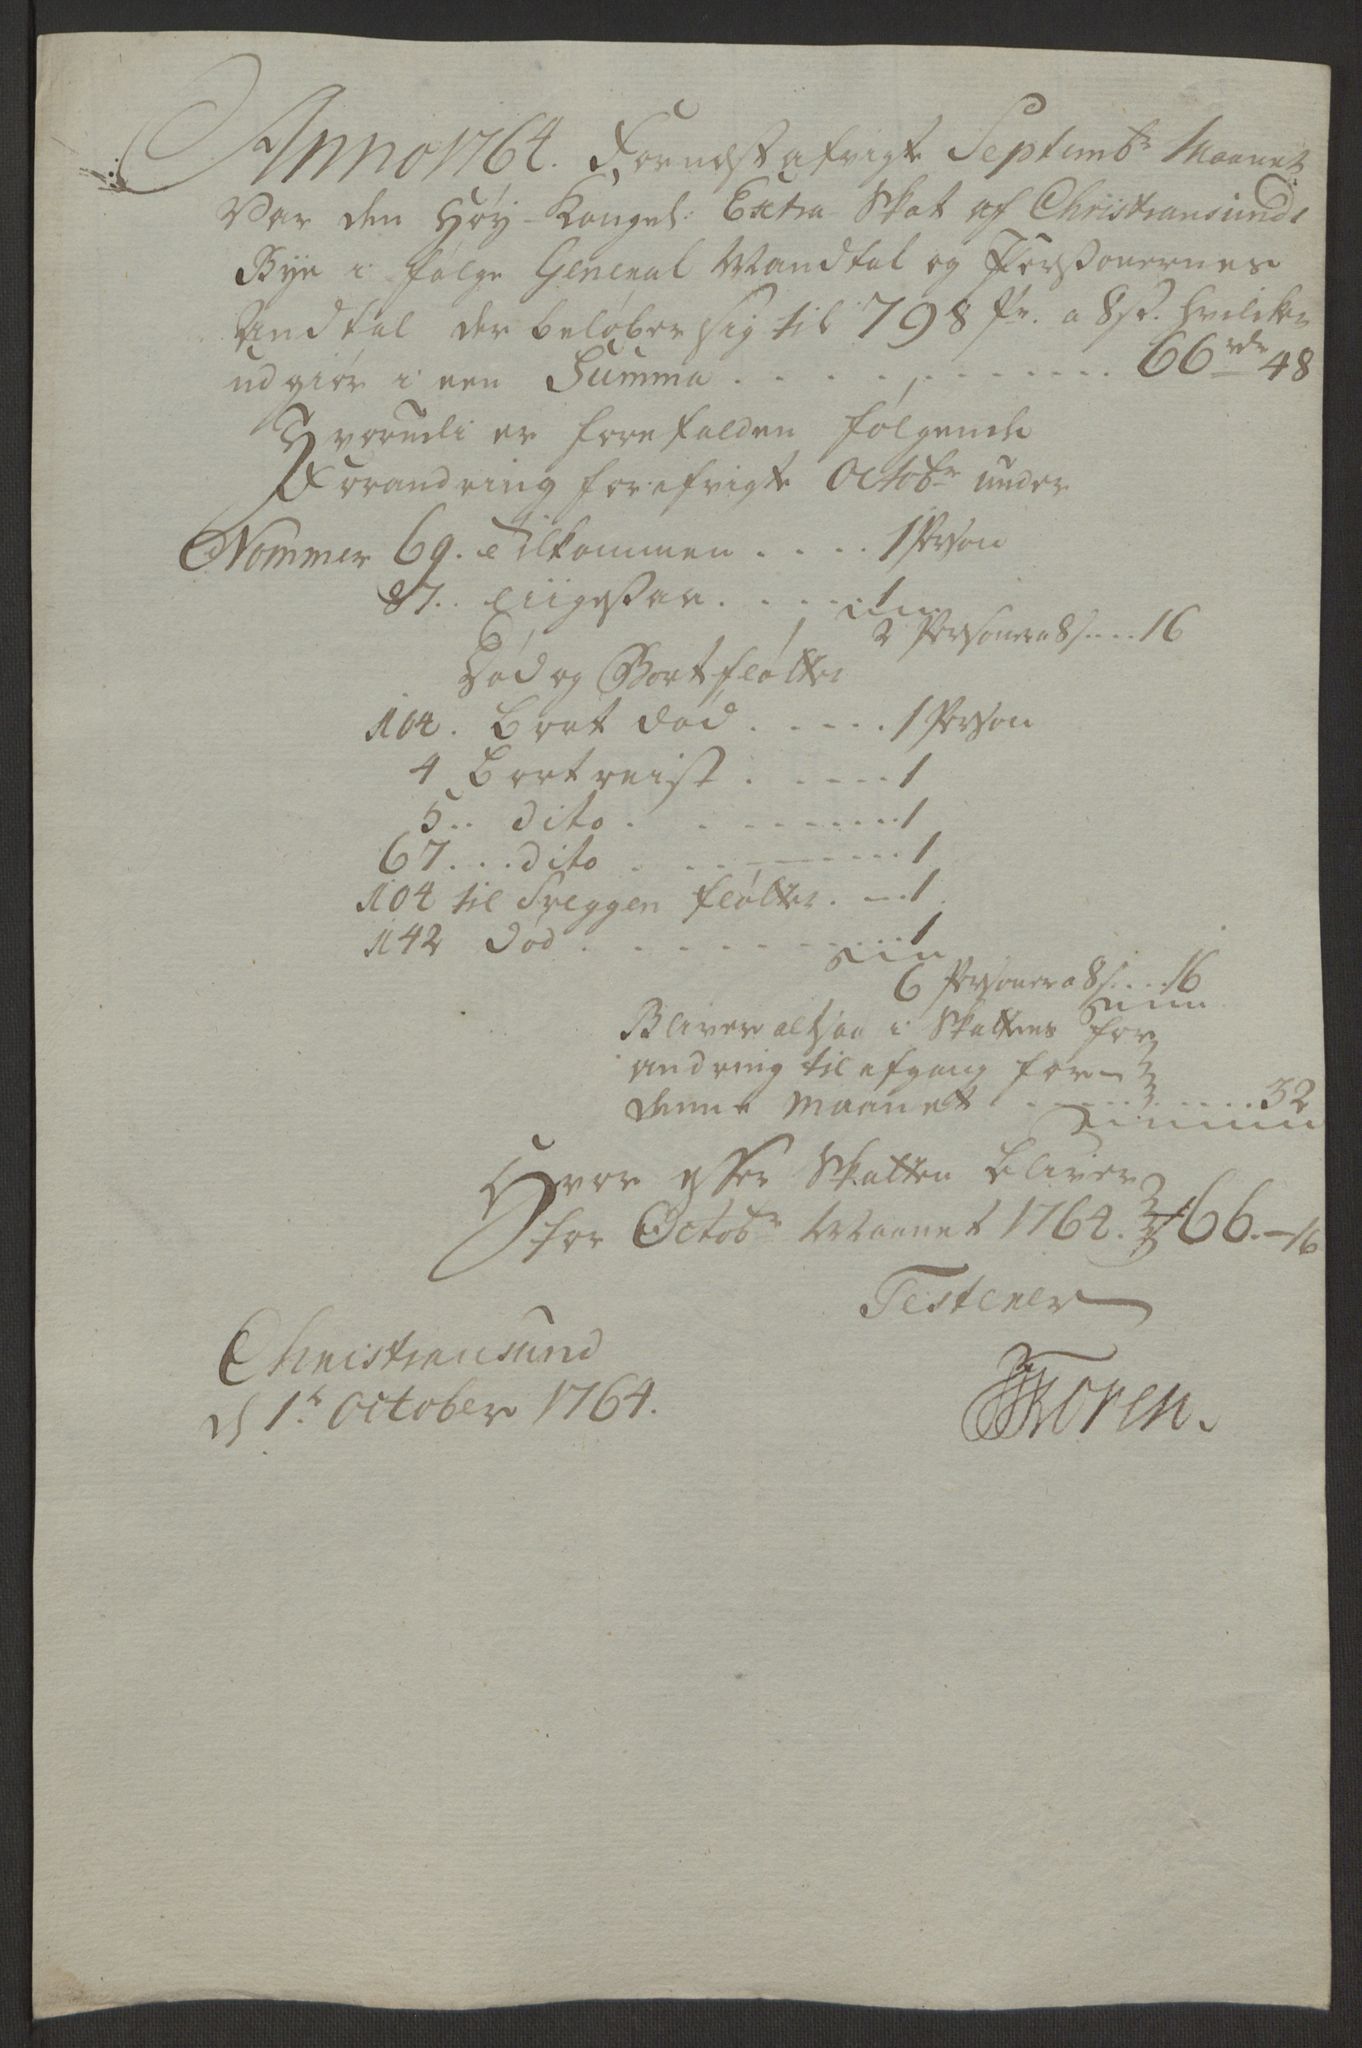 Anno 1764. For nest afvigte Septembr Maanet
Var den Høy-Kongel: Extra Skat af Christiansunds
Bye i følge General Mandtal og Personernes
Andtal der beløber sig til 798 Pr. a 8 s. hvilcket
udgiør i een Summa . . . . . . . . . . . . 66 rdr 48
Hvorudi er forefalden følgende
Forandring for afvigte Octobr under
Nommer 69. Tilkommen . . . . 1 Person
87. . Liigesaa . . . . . . 1
2 Personer a 8 s . . . 16
Død og Bortfløtter
104. bort død . . . . . 1 Person
4 bortreist . . . . . 1
5 . . dito . . . . . . . . 1
67 . . . dito . . . . . . . 1
104 til Freggen fløtter . . . 1
142 død . . . . . . . . . 1
6 Personer a 8 s . . . 16
Bliver altsaa i Skattens for
andring til afgang for
denne Maanet . . . . . . . . . 32
Hvor efter Skatten bliver
for Octobr Maanet 1764. 66. - 16
Testerer
Christiansund
d 1te October 1764.
Koren.